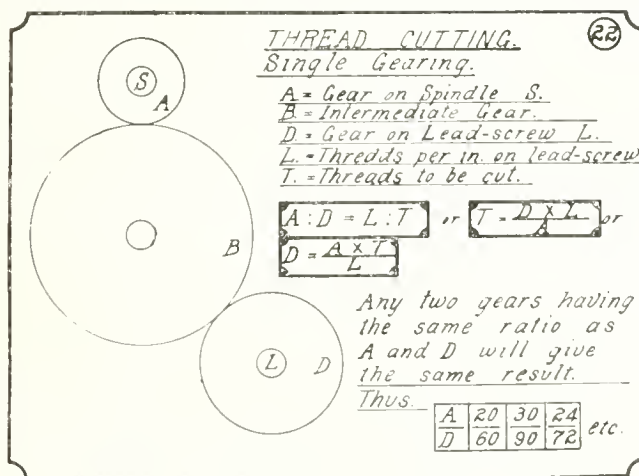 THREAD CUTTING.
22
Single Gearing.
A = Gear on Spindle S.
B = Intermediate Gear.
D = Gear on Lead-screw L.
L. = Thredds per in. on lead-screw
T. = Threads to be cut.
A : D = L : T or T = D X L / A or
D = A X T / L
Any two gears having
the same ratio as
A and D will give
the same result.
Thus.
A 20 30 24
D 60 90 72 etc.
S
A
B
L D